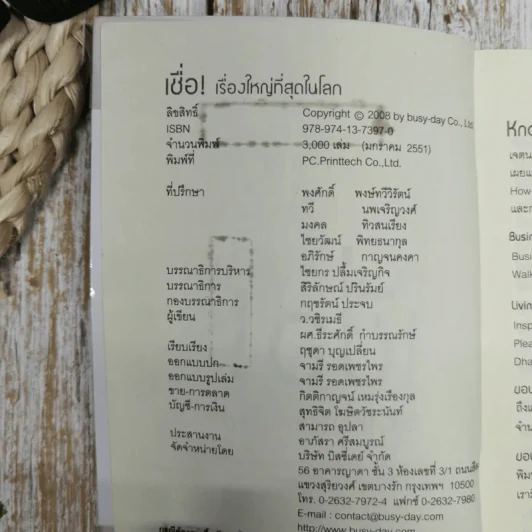 เชื่อ! เรื่องใหญ่ที่สุดในโลก
ลิขสิทธิ์ Copyright © 2008 by busy-day Co., Ltd
ISBN 978-974-13-7397-0
จำนวนพิมพ์ 3,000 เล่ม (มกราคม 2551)
พิมพ์ที่ PC.Printtech Co.,Ltd.
ที่ปรึกษา พงศักดิ์ พงษ์ทวีวิรัตน์
ทวี นพเจริญวงศ์
มงคล ทิวสนเรียง
ไชยวัฒน์ พิทยธนากุล
อภิรักษ์ กาญจนคงคา
บรรณาธิการบริหาร ไชยกร ปลื้มเจริญกิจ
บรรณาธิการ สิริลักษณ์ ปรินรัมย์
กองบรรณาธิการ กฤชรัตน์ ประจบ
ผู้เขียน ว.วชิรเมธี
ผศ.ธีระศักดิ์ กำบรรณรักษ์
เรียบเรียง ฤชุตา บุญเปลี่ยน
ออกแบบปก จามรี รอดเพชรไพร
ออกแบบรูปเล่ม จามรี รอดเพชรไพร
ขาย-การตลาด กิตติกาญจน์ เหมรุ่งเรืองกุล
บัญชี-การเงิน สุทธิจิต โฆษิตวัชระนันท์
สามารถ อุปลา
ประสานงาน อาภัสรา ศรีสมบูรณ์
จัดจำหน่ายโดย บริษัท บิสซี่เดย์ จำกัด
56 อาคารญาดา ชั้น 3 ห้องเลขที่ 3/1
แขวงสุริยวงศ์ เขตบางรัก กรุงเทพฯ 10500
โทร. 0-2632-7972-4 แฟกซ์ 0-2632-7980
E-mail : contact@busy-day.com
http://www.busy-day.com
How-
และก
Busi
Walk
Insp
Plea
Dha